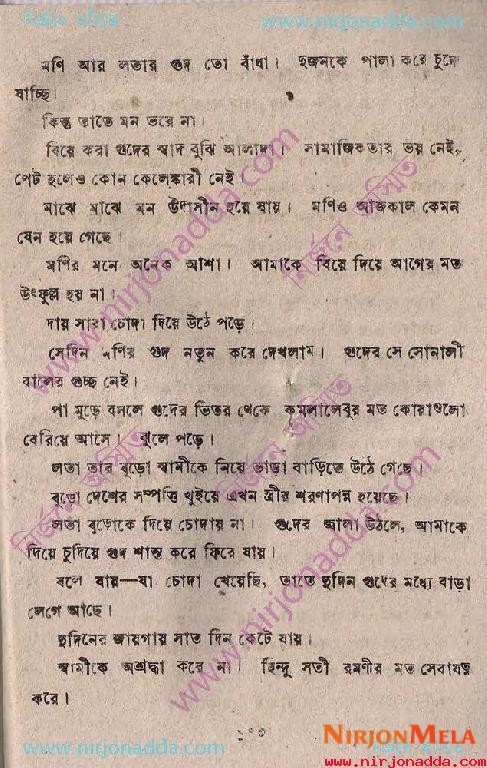 নির্জনে অস্মিত
www.nirjonadda.com
মণি আর লতার গুদ তো বাঁধা। দুজনকে পালা করে চুদে
যাচ্ছি।
কিন্তু তাতে মন ভরে না।
বিয়ে করা গুদের স্বাদ বুঝি আলাদা। সামাজিকতার ভয় নেই,
পেট হলেও কোন কেলেঙ্কারী নেই
মাঝে মাঝে মন উদাসীন হয়ে যায়। মণিও আজকাল কেমন
যেন হয়ে গেছে।
মণির মনে অনেক আশা। আমাকে বিয়ে দিয়ে আগের মত
উৎফুল্ল হয় না।
দায় সারা চোদা দিয়ে উঠে পড়ে।
সেদিন মণির গুদ নতুন করে দেখলাম। গুদের সে সোনালী
বালের গুচ্ছ নেই।
পা মুড়ে বসলে গুদের ভিতর থেকে কমলালেবুর মত কোয়াগুলো
বেরিয়ে আসে। ঝুলে পড়ে।
লতা তার বুড়ো স্বামীকে নিয়ে ভাড়া বাড়িতে উঠে গেছে।
বুড়ো দেশের সম্পত্তি খুইয়ে এখন স্ত্রীর শরণাপন্ন হয়েছে।
লতা বুড়োকে দিয়ে চোদায় না। গুদের জ্বালা উঠলে, আমাকে
দিয়ে চুদিয়ে গুদ শান্ত করে ফিরে যায়।
বলে যায়—যা চোদা খেয়েছি, তাতে দুদিন গুদের মধ্যে বাড়া
লেগে আছে।
দুদিনের জায়গায় সাত দিন কেটে যায়।
স্বামীকে অশ্রদ্ধা করে না। হিন্দু সতী রমণীর মত সেবাযত্ন
করে।
www.nirjonadda.com
নির্জনে অস্মিত
www.nirjonadda.com
নির্জনে অস্মিত
www.nirjonadda.com
www.nirjonadda.com
NIRJONMELA
www.nirjonadda.com